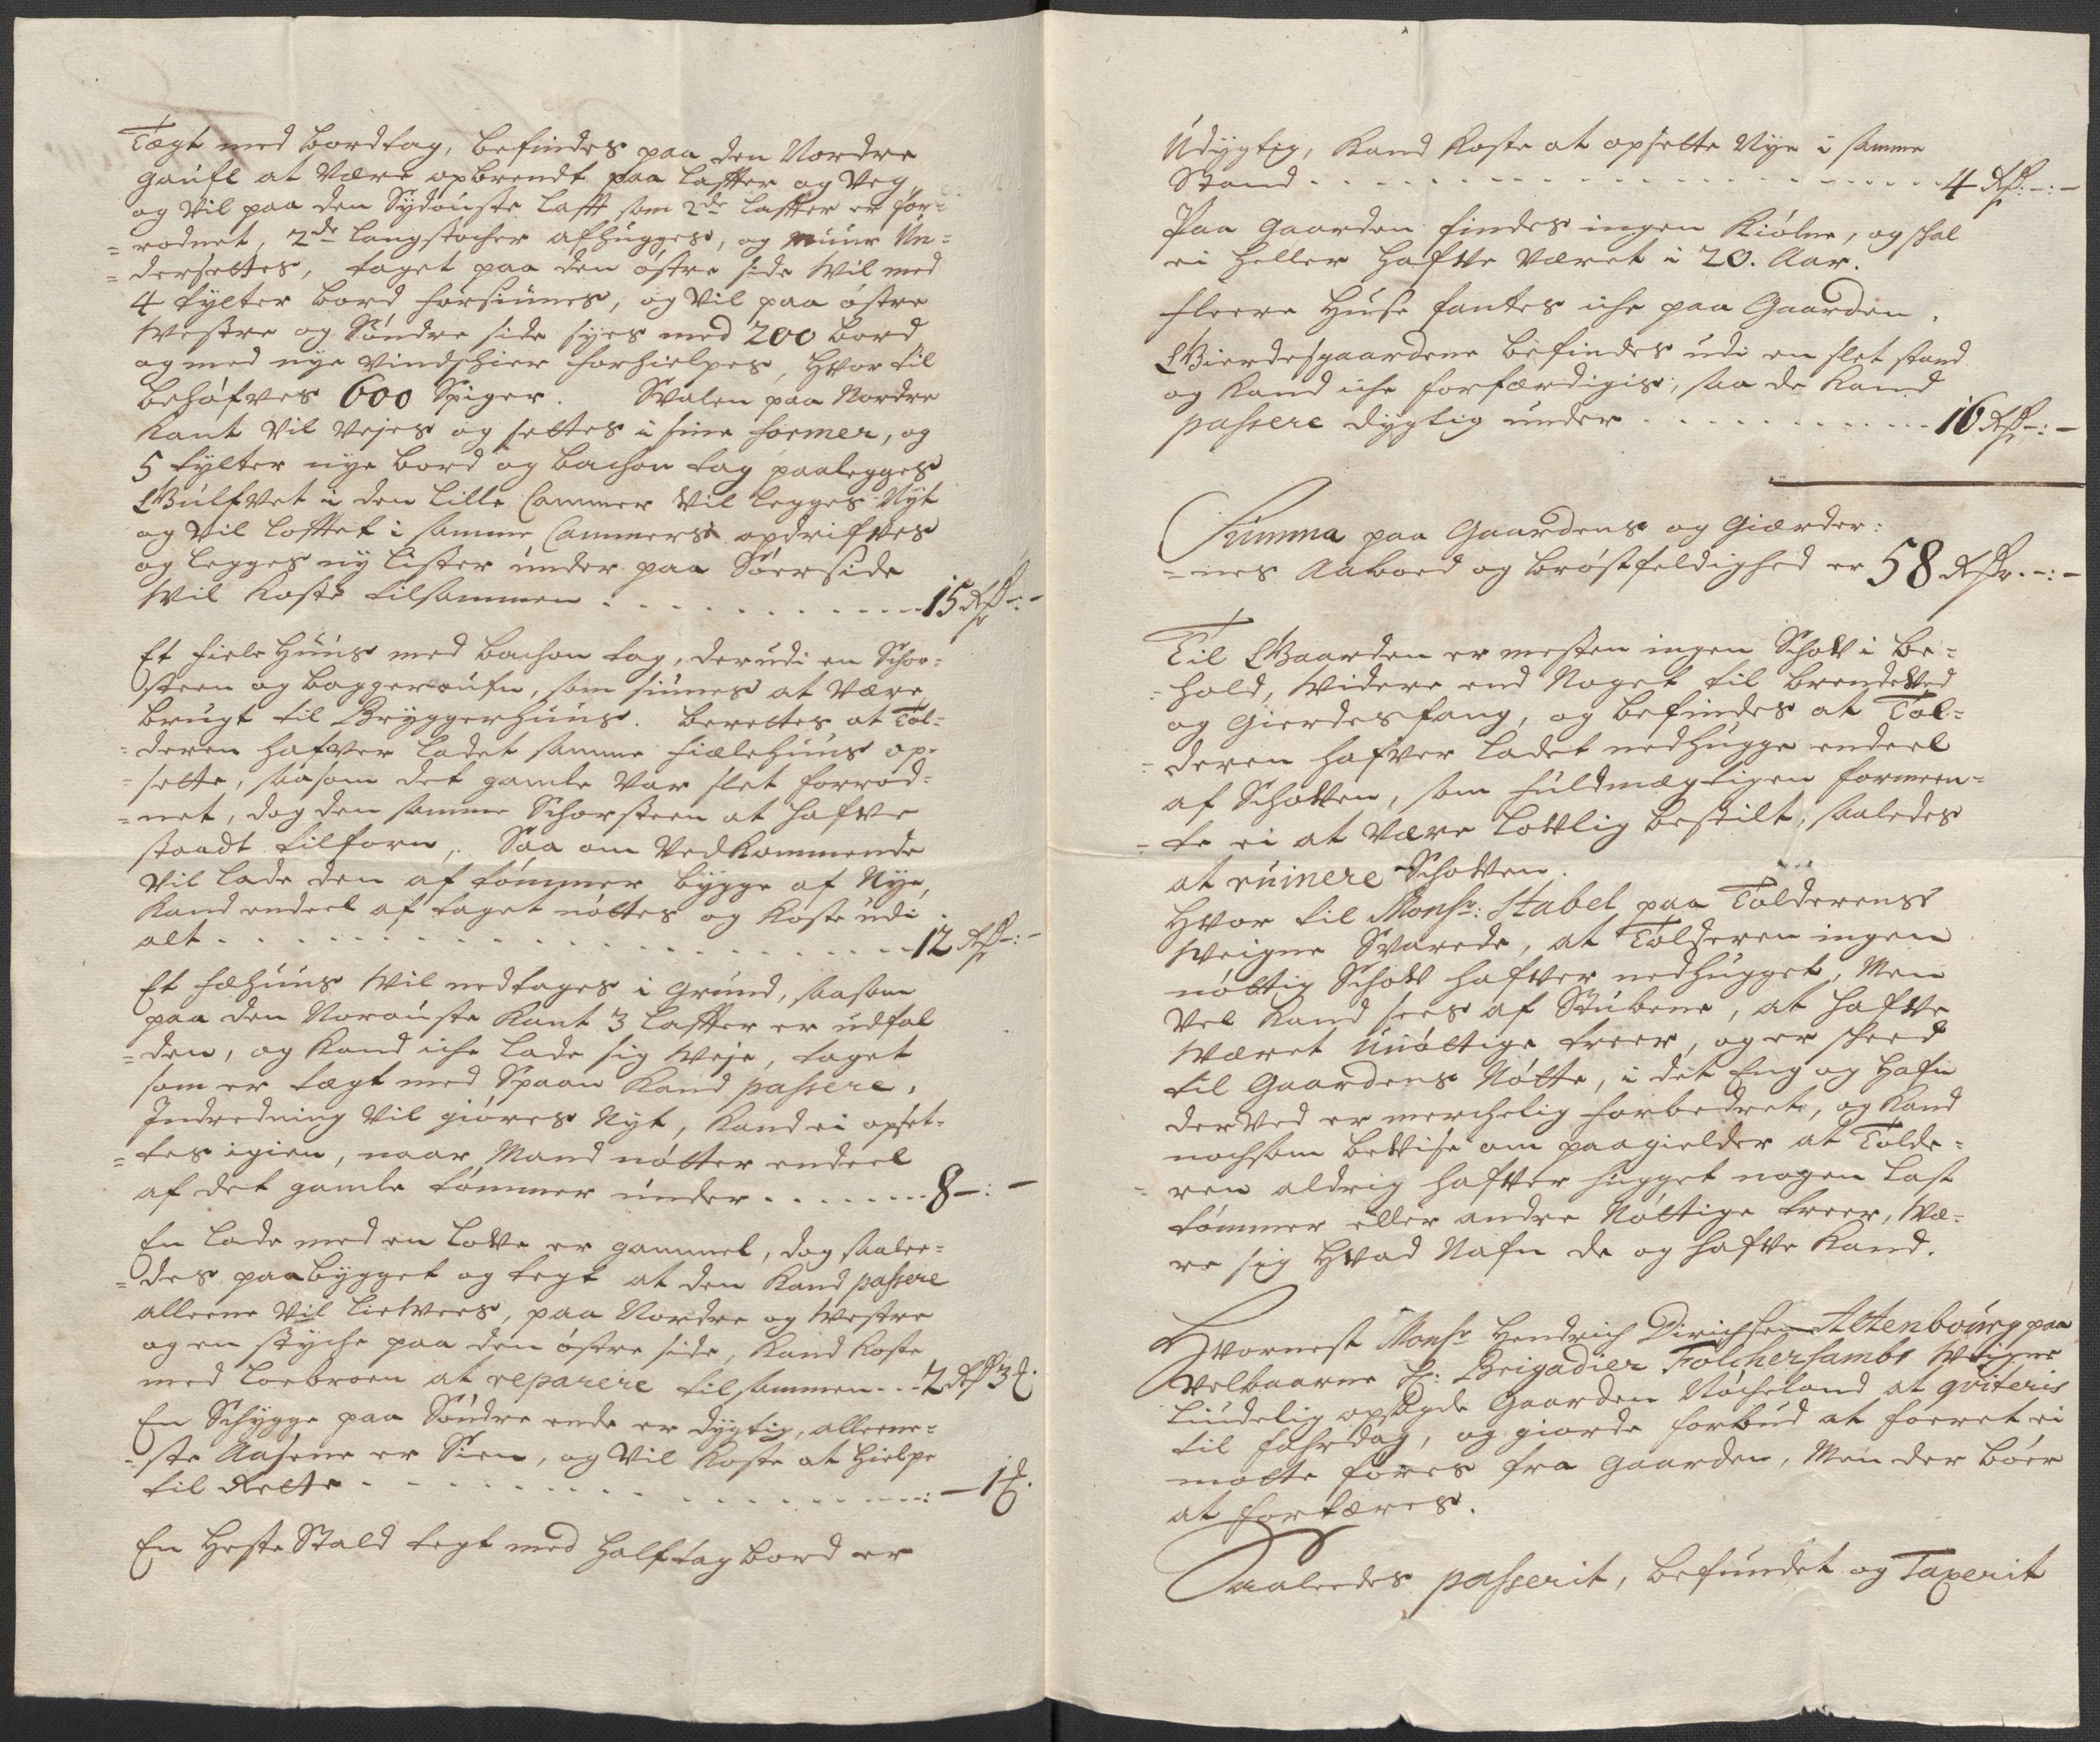 Tægt med bordtag, befindes paa den Nordre
gaufl at være opbrendt paa laffter og Veg
og vil paa den Sydouste lafft som 2de laffter er for-
=rodnet, 2de langstocher afhugges, og muur Un=
=dersettes, taget paa den östre side Wil med
4 tylter bord forsiunes, og Vil paa östre
Westre og Söndre side syes med 200 bord
og med nye vindschier forhielpes, hvor til
behöfves 600 Spiger. Svalen paa Nordre
Kant Vil Vejes og settes i sine former, og
5 tylter nye bord og bachon tag paalegges
Gulfvet i den lille Cammer Vil legges Nyt
og Vil lofftet i samme Cammers opdrifves
og legges ny lister under paa Söer side
Wil Koste tilsammen . . . . . . . . 15 Rdr -:-
Et fiele huus med bachon tag, derudi en Schor=
steen og bagger oufn, som siunes at være
brugt til Bryggerhuus. Berettes at Tol=
=deren hafver ladet samme fiælehuus op-
=sette, saasom det gamle Var slet forrod=
=net, dog den samme Schorsteen at hafve
staadt tilforn, Saa om Vedkommende
Vil lade den af tömmer bygge af Nye,
Kand endeel af taget nöttes og Koste udi
alt . . . . . . . . . . . . 12 Rdr -:-
Et fæhuus Wil nedtages i Grund, saasom
paa den Norouste Kant 3 laffter er udfal
=den, og Kand iche lade sig Weje, taget
som er tægt med Spaan Kand passere,
Indredning Vil giöres Nyt, Kand ei opset-
=tes igien, naar Mand nötter endeel
af det gamle tömmer under . . . . . . . 8 -:-
En lade med en lowe er gammel, dog saalee=
=des paabygget og tegt at den Kand passere
alleene Vil lietvees, paa Nordre og Westre
og en styche paa den östre side, Kand Koste
med loebroen at reparere tilsammen . . . 2 Rdr 3 ₰.
En Schygge paa Söndre ende er dygtig, alleene=
=ste Aasene er Sien, og Vil Koste at hielpe
til Rette . . . . . . . . . . . :- 1 ₰.
En Heste Stald tegt med halftag bord er
Udygtig, Kand Koste at opsette Nye i samme
Stand . . . . . . . . . . . . 4 Rdr -:-
Paa Gaarden findes ingen Kiölne, og skal
ei heller hafve Været i 20. Aar.
fleere Huse fantes iche paa Gaarden.
Gierdesgaardene befindes udi en slet stand
og Kand iche forfærdigis, saa de Kand
passere dygtig under . . . . . . . . 16 Rdr -:-
Summa paa Gaardens og Gierder:
=nes Aaboed og bröstfeldighed er 58 Rdr. -:-
Til Gaarden er mesten ingen Schow i be=
=hold, Widere end Noget til brendeVed
og Gierdesfang, og befindes at Tol=
=deren hafver ladet nedhugge endeel
af Schowen, som fuldmægtigen formeen=
=te ei at Være lowlig bestilt, saaledes
at ruinere Schowen.
Hvor til Monsr: Stabel paa Tolderens
Weigne Svarede, at Tolderen ingen
nöttig Schow hafver nedhugget, Men
Vel Kand sees af Stubene, at hafve
Været unöttige treer, og er skeed
til Gaardens Nötte, i det Eng og Hafn
derVed er merchelig forbedret, og Kand
nochsom bewise om paagielder at Tolde=
=ren aldrig hafver hugget nogen last
tömmer eller andre Nöttige treer, Væ=
re sig Hvad Nafn de og hafve Kand.
Hvornest Monsr Hendrich Dirichsen Altenbourg paa
Velbaarne Hr: Brigadier Folchersambs Weigne
liudelig opsagde Gaarden Nöcheland at qviteris
til fahrdag, og giorde forbud at foeret ei
motte föres fra Gaarden, Men der böer
at fortæres.
Saaledes passerit, befundet og Taxerit